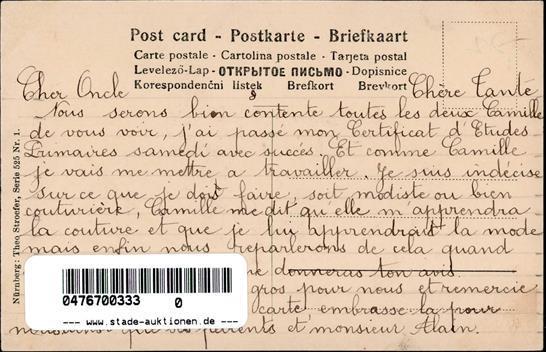 Post card - Postkarte - Briefkaart
Carte postale - Cartolina postale - Tarjeta postal
Levelező-Lap - ОТКРЫТОЕ ПИСЬМО - Dopisnice
Korespondenční lístek - Brefkort - Brevkort
Cher Oncle & Chère Tante
Nous serons bien contente toutes les deux Camille
de vous voir, j'ai passé mon Certificat d'Etudes
Primaires samedi avec succés. Et comme Camille
je vais me mettre a travailler. Je suis indécise
sur ce que je dois faire, soit modiste ou bien
couturière, Camille me dit qu'elle m'apprendra
la couture et que je lui apprendrait la mode
mais enfin nous reparlerons de cela quand
me donneras ton avis.
gros pour nous et remercie
carte, embrasse la pour
que vos parents et monsieur Alain.
Nürnberg: Theo Stroefer, Serie 525 Nr. 1.
0476700333 0
www.stade-auktionen.de